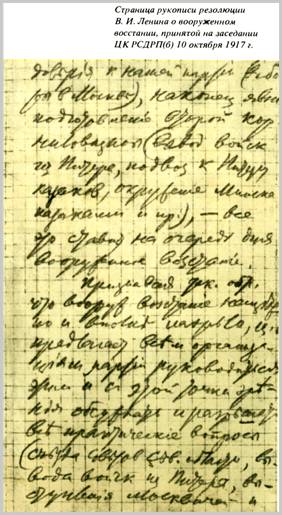 Страница рукописи резолюции
В. И. Ленина о вооруженном
восстании, принятой на заседании
ЦК РСДРП(б) 10 октября 1917 г.
доверiя к нашей партiи (выбо
ры в Москве), наконец явное
подготовленiе второй кор
ниловщины (вывод войск
из Питера, подвоз к Питеру
казаков, окруженiе Минска
казаками и пр.), — все
это ставит на очередь дня
вооруженное возстанiе.
Признавая
что вооруж возстанiе
но и вполне назрело,
предлагает всем организа
цiям партiи руководиться
этим и с этой точки зре
нiя обсуждать и разрешать
все практическiе вопросы
(съезда советов сев. области, вы
вода войск из Питера, вы
ступленiя москвичей и